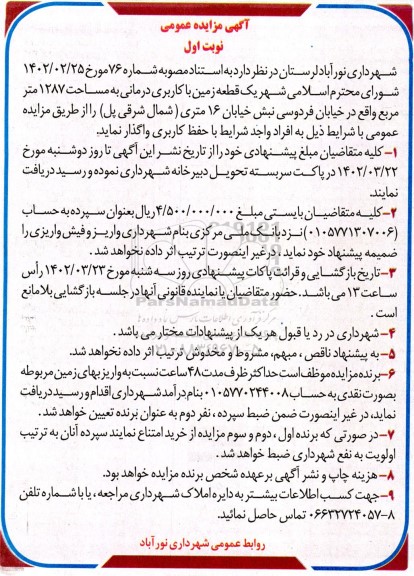 آگهی مزایده عمومی
نوبت اول
شهرداری نورآباد لرستان در نظر دارد به استناد مصوبه شماره ۷۶ مورخ ۱۴۰۲/۰۲/۲۵
شورای محترم اسلامی شهر یک قطعه زمین با کاربری درمانی به مساحت ۱۲۸۷ متر
مربع واقع در خیابان فردوسی نبش خیابان ۱۶ متری ( شمال شرقی پل ) را از طریق مزایده
عمومی با شرایط ذیل به افراد واجد شرایط با حفظ کاربری واگذار نماید.
۱- کلیه متقاضیان مبلغ پیشنهادی خود را از تاریخ نشر این آگهی تا روز دوشنبه مورخ
۱۴۰۲/۰۳/۲۲ در پاکت سربسته تحویل دبیرخانه شهرداری نموده و رسید دریافت
نمایند.
۲- کلیه متقاضیان بایستی مبلغ ۴/۵۰۰/۰۰۰/۰۰۰ ریال بعنوان سپرده به حساب
(۰۱۰۵۷۷۱۳۰۷۰۰۶) نزد بانک ملی مرکزی بنام شهرداری واریز و فیش واریزی را
ضمیمه پیشنهاد خود نماید ، در غیر اینصورت ترتیب اثر داده نخواهد شد.
۳- تاریخ بازگشایی و قرائت پاکات پیشنهادی روز سه شنبه مورخ ۱۴۰۲/۰۳/۲۳ رأس
ساعت ۱۳ می باشد. حضور متقاضیان یا نماینده قانونی آنها در جلسه بازگشایی بلامانع
است .
ParsNamadData
۴- شهرداری در رد یا قبول هر یک از پیشنهادات مختار می باشد .
۵- به پیشنهاد ناقص ، مبهم، مشروط و مخدوش ترتیب اثر داده نخواهد شد.
۶- برنده مزایده موظف است حداکثر ظرف مدت ۴۸ ساعت نسبت به واریز بهای زمین مربوطه
بصورت نقدی به حساب ۰۱۰۵۷۷۰۲۴۴۰۰۸ بنام درآمد شهرداری اقدام و رسید دریافت
نماید، در غیر اینصورت ضمن ضبط سپرده ، نفر دوم به عنوان برنده تعیین خواهد شد.
۷- در صورتی که برنده اول ، دوم و سوم مزایده از خرید امتناع نمایند سپرده آنان به ترتیب
اولویت به نفع شهرداری ضبط خواهد شد.
۸- هزینه چاپ و نشر آگهی برعهده شخص برنده مزایده خواهد بود.
۹- جهت کسب اطلاعات بیشتر به دایره املاک شهرداری مراجعه ، یا با شماره تلفن
۸-۰۶۶۳۲۷۲۴۰۵۷ تماس حاصل نمائید.
روابط عمومی شهرداری نورآباد